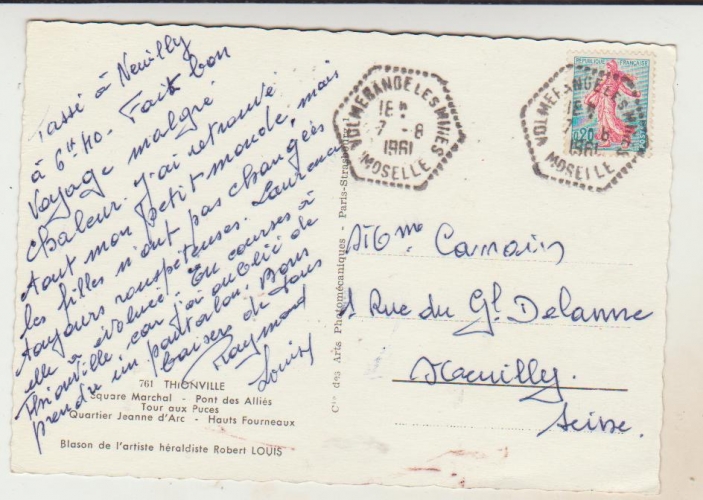 Passé à Neuilly
à 6h40. Fait bon
Voyage malgré
chaleur. J'ai retrouvé
tout mon petit monde, mais
les filles n'ont pas changées
toujours rouspéteuses. Laurence
elle a évolué. En courses à
Thionville, car j'ai oublié de
prendre un pantalon. Bons
baisers de tous
Raymond
Louis
761 THIONVILLE
Square Marchal - Pont des Alliés
Tour aux Puces
Quartier Jeanne d'Arc - Hauts Fourneaux
Blason de l'artiste héraldiste Robert LOUIS
Cie des Arts Photomécaniques - Paris-Strasbourg
VOLMERANGE LES MINES
18H
7 -8
1961
MOSELLE
REPUBLIQUE FRANÇAISE
0,20
POSTES
VOLMERANGE LES MINES
18H
7 -8
1961
MOSELLE
Rue du Gl Delanne
Neuilly.
Seine.